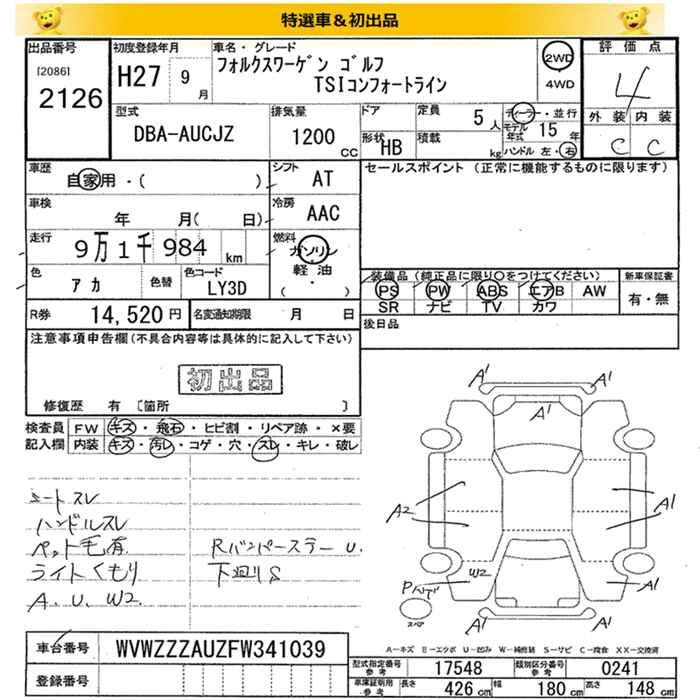 特選車＆初出品
出品番号
[2086]
2126
初度登録年月
H27 9月
車名・グレード
フォルクスワーゲン ゴルフ
TSIコンフォートライン
2WD
4WD
評価点
4
外装 内装
C C
型式
DBA-AUCJZ
排気量
1200 CC
ドア
形状 HB
定員 5人
積載 kg
ディーラー・並行
モデル年式 15年
ハンドル 左・右
車歴
自家用・( )
シフト
AT
車検
年 月( 日)
冷房
AAC
走行
9万1千984 km
燃料
ガソリン
軽油
( ・ )
色
アカ
色替
色コード
LY3D
R券 14,520円 名変通知期限 月 日
セールスポイント (正常に機能するものに限ります)
装備品(純正品に限り○をつけてください)
PS PW ABS エアB AW
SR ナビ TV カワ
新車保証書
有・無
後日品
注意事項申告欄(不具合内容等は具体的に記入して下さい)
初出品
修復歴 有 〔箇所 〕
検査員記入欄
FW キズ・飛石・ヒビ割・リペア跡・×要
内装 キズ・汚レ・コゲ・穴・スレ・キレ・破レ
シートスレ
ハンドルスレ
ペット毛有
ライトくもり
A、U、W2
Rバンパーステー U.
下廻りS
A1 A1
A1
A2
A1
W2
A1
Pパンク
スペア
A1 A1
A－キズ E－エクボ U－凹み W－補修跡 S－サビ C－腐食 XX－交換済
車台番号 WVWZZZAUZFW341039
登録番号
型式指定番号 参考 17548 類別区分番号 参考 0241
車庫証明用 参考 長さ 426 cm 幅 180 cm 高さ 148 cm